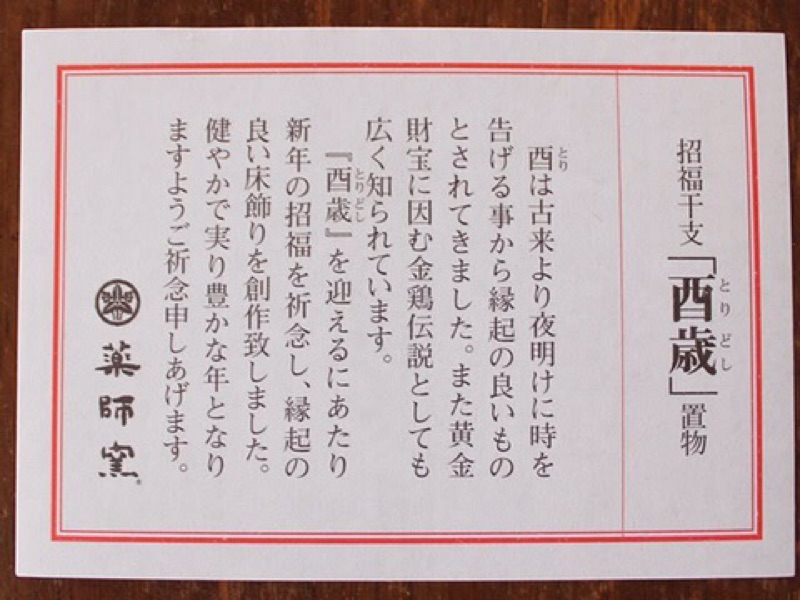 招福干支「酉歳」置物
とりどし
酉は古来より夜明けに時を
とり
告げる事から縁起の良いもの
とされてきました。また黄金
財宝に因む金鶏伝説としても
広く知られています。
『酉歳』を迎えるにあたり
とりどし
新年の招福を祈念し、縁起の
良い床飾りを創作致しました。
健やかで実り豊かな年となり
ますようご祈念申しあげます。
薬師窯®